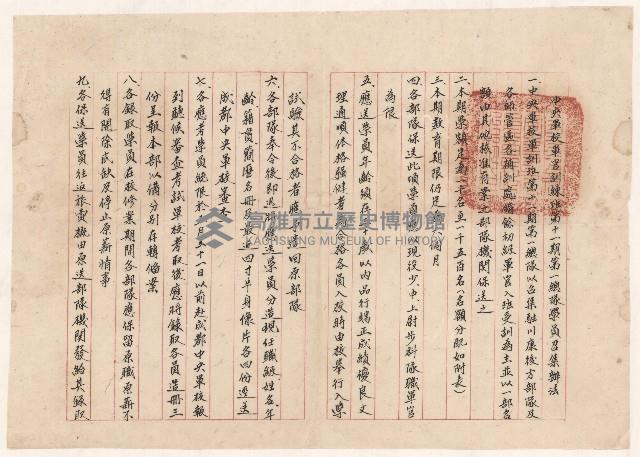 中央軍校軍官訓練班第十一期第一總隊學員召集辦法
一、中央軍校軍訓班第十一期第一總隊以召集駐川康後方部隊及
各師管區各補訓處將餘初級軍官入班受訓為主並以一部名
額由其他核准有案之部隊機關保送之
二、本期學額定為一千名至一千五百名（名額分配如附表）
三、本期教育期限仍定為六個月
四、各部隊保送此項學員概以現役少中上尉步科隊職軍官
為限
五、應送學員年齡須在 歲以內品行端正成績優良文
理通順体格強健者為合格各員入校時由校舉行入學
試驗其不合格者應予遣回原部隊
六、各部隊奉令後即選定應送學員分造現任職級姓名年
齡籍貫簡歷名冊及最近四寸半身像片各四份逕送
成都中央軍校審查
七、各應考學員統限於三月三十一日以前赴成都中央軍校報
到聽候審查考試軍校考取後應將錄取各員造冊三
份呈報本部以備分別存轉備案
八、各錄取學員在校修業期間各部隊應保留原職原薪不
得有開除底缺及停止原薪情事
九、各保送學員往返旅費概由原送部隊機關發給其錄取
高雄市立歷史博物館
KAOHSIUNG MUSEUM OF HISTORY